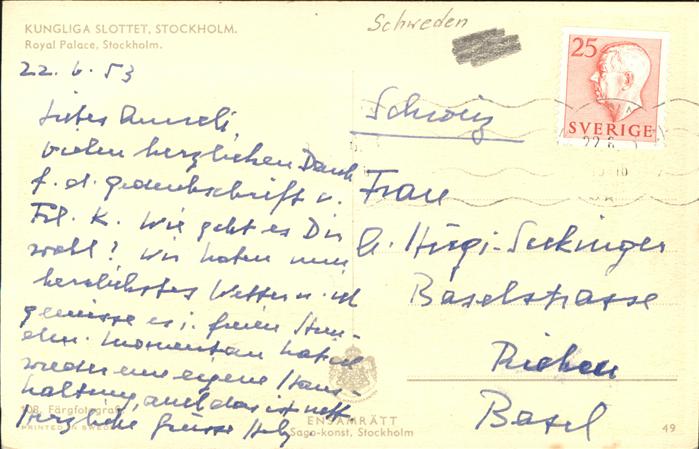 KUNGLIGA SLOTTET, STOCKHOLM.
Royal Palace, Stockholm.
Schweden
22. 6. 53
Liebes Anneli,
vielen herzlichen Dank
f. d. Gedenkschrift v.
Frl. K. Wie geht es Dir
wohl? Wir haben nun
herrlichstes Wetter u. ich
geniesse es i. freien Stun-
den. Momentan habe
wieder eine eigene Haus-
haltung, auch das ist nett.
Herzliche Grüsse
25
SVERIGE
22.6
Schweiz
Frau
Hügi-Seckinger
Baselstrasse
Riehen
Basel
108. Färgfotografi
PRINTED IN SWEDEN
ENSAMRÄTT
Sago-konst, Stockholm
49